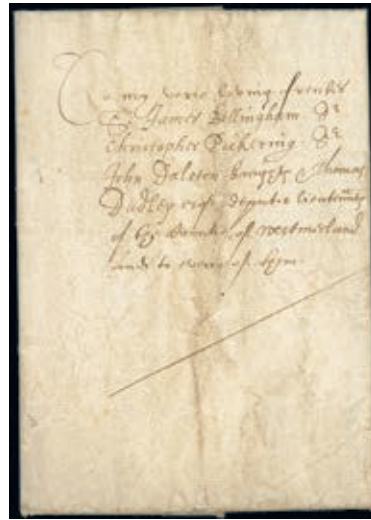 To my verie loving frendes
Sr James Bellingham Sr
Christopher Pickering Sr
John Dalston knightes Thomas
Dudley esqr deputie lieutennts
of the Countie of westmerland
and to everie of them